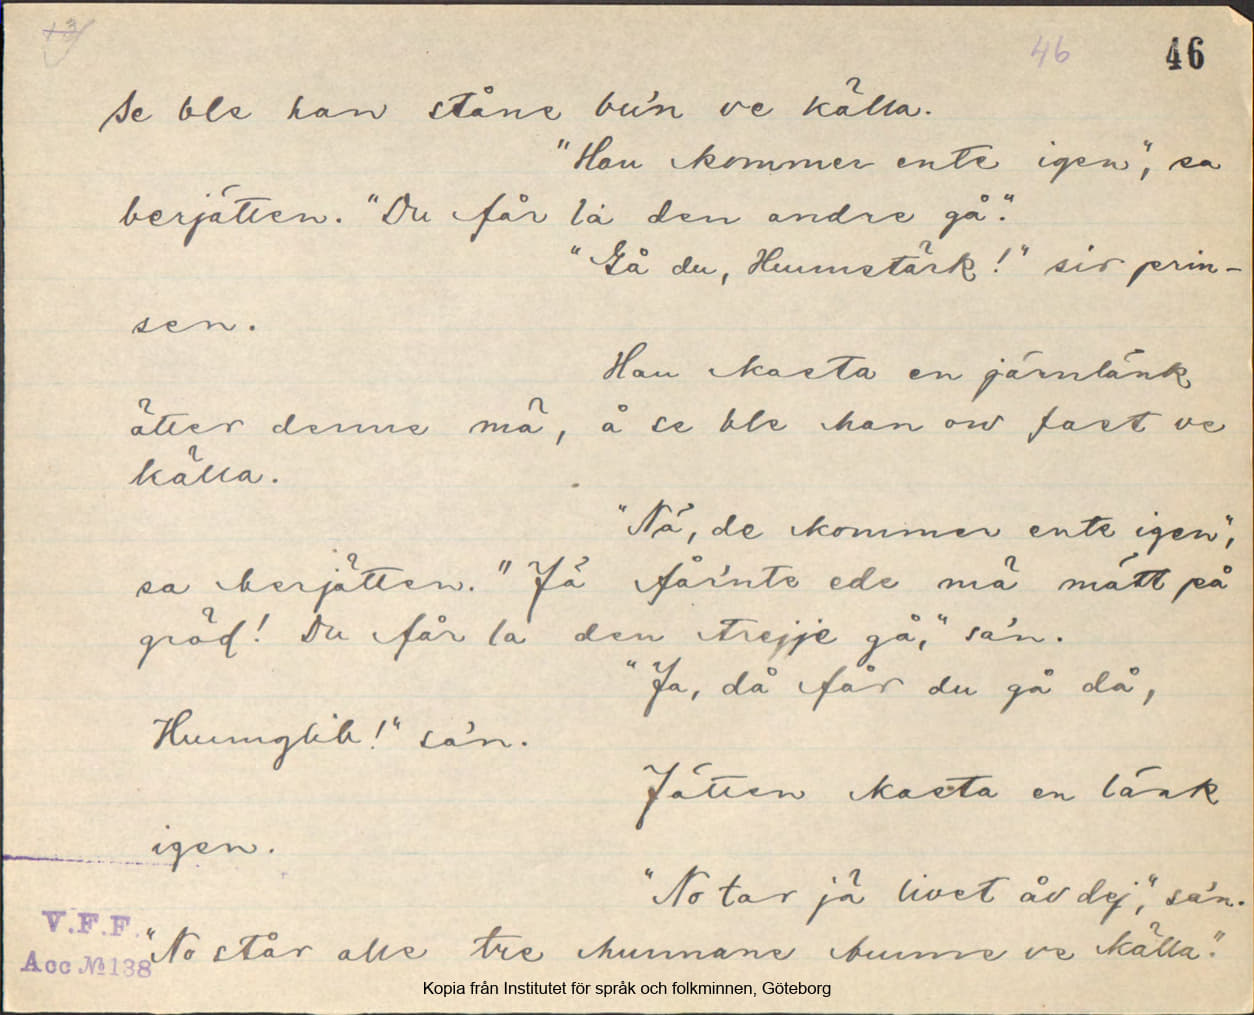 13
46 46
Se ble han ståne bu'n ve källa.
"Han kommer ente igen", sa
berjätten. "Du får la den andre gå."
"Gå du, Hunnstärk!" sir prin-
sen.
Han kasta en järnlänk
ätter denne mä, å se ble han ow fast ve
källa.
"Nä, de kommer ente igen",
sa berjätten. "Jä får'nte ede mä mätt på
gröd! Du får la den trejje gå," sa'n.
"Ja, då får du gå då,
!" sa'n.
Jätten kasta en länk
igen.
"No tar jä livet åv dej", sa'n.
"No står alle tre hunnane bunne ve källa."
V.F.F.
Acc № 138
Kopia från Institutet för språk och folkminnen, Göteborg